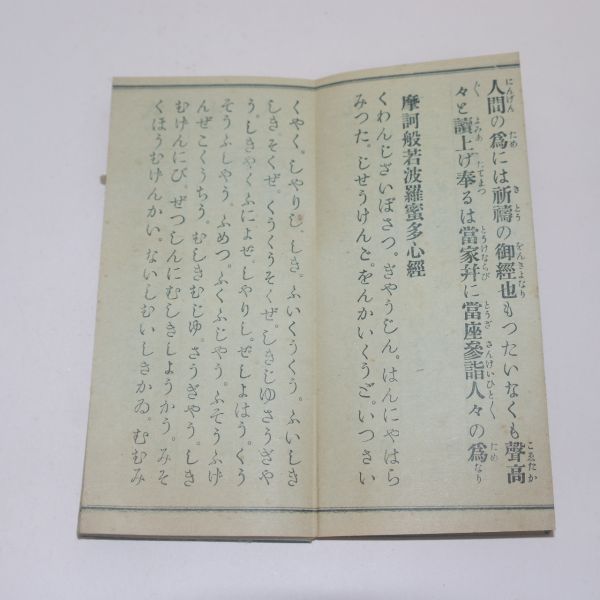 人間の爲には祈禱の御經也もつたいなくも聲高
々と讀上げ奉るは當家幷に當座參詣人々の爲
摩訶般若波羅蜜多心經
くわんじざいぼさつ。ぎやうじん。はんにやはら
みつた。じせうけんど。をんかいくうど。いつさい
くやく。しやりし、しき。ふいくうくう。ふいしき
しき。そくぜ。くうくうそくぜ。しきじゆさうぎや
う。しきやくふによぜ。しやりし。ぜしよはう。くう
そうふしやう。ふめつ。ふくふじやう。ふそうふげ
んぜこくうちう。むしきむじゆ。さうぎやう。しき
むげんにび。ぜつしんにむしきしようかう。みそ
くほうむげんかい。ないしむいしきかゐ。むむみ